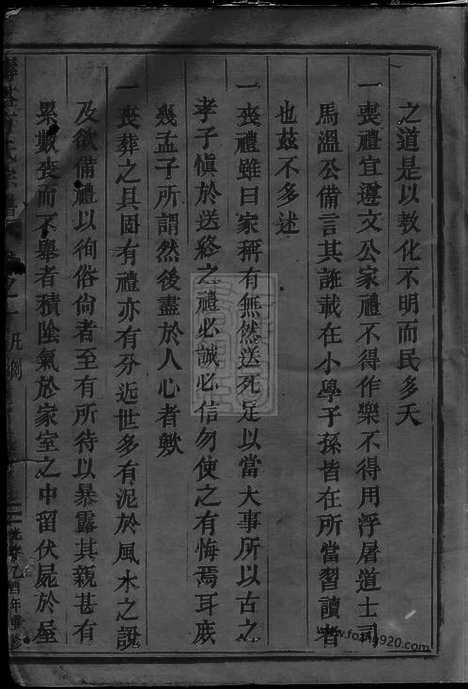 之道是以教化不明而民多夭
一喪禮宜遵文公家禮不得作樂不得用浮屠道士司
馬溫公備言其誑載在小學子孫皆在所當習讀者
也茲不多述
一喪禮雖曰家稱有無然送死足以當大事所以古之
孝子愼於送終之禮必誠必信勿使之有悔焉耳庶
幾孟子所謂然後盡於人心者歟
一喪葬之具固有禮亦有分近世多有泥於風水之說
及欲備禮以徇俗尙者至有所待以暴露其親甚有
累數喪而不舉者積陰氣於家室之中留伏屍於屋
凡例
乙酉年重修
www.fozang920.com